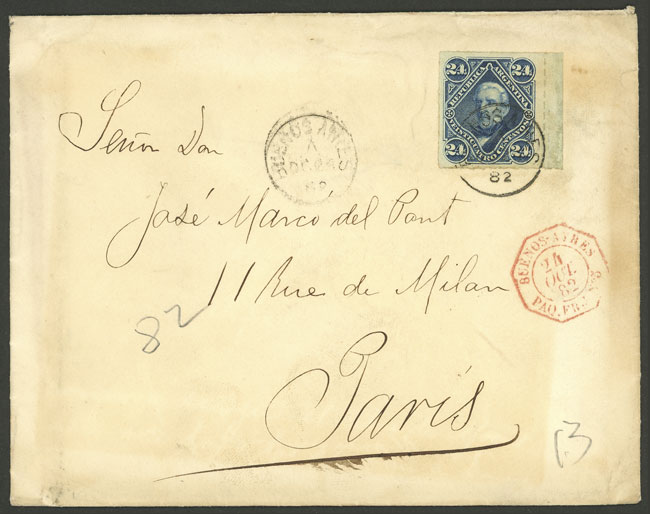 24 24
REPUBLICA ARGENTINA
VEINTICUATRO CENTAVOS
24 24
82
BUENOS AIRES
82
Señor Don
José Marcó del Pont
11 Rue de Milan
Paris
BUENOS-AYRES
24
OCT.
82
PAQ. FR.
82
13